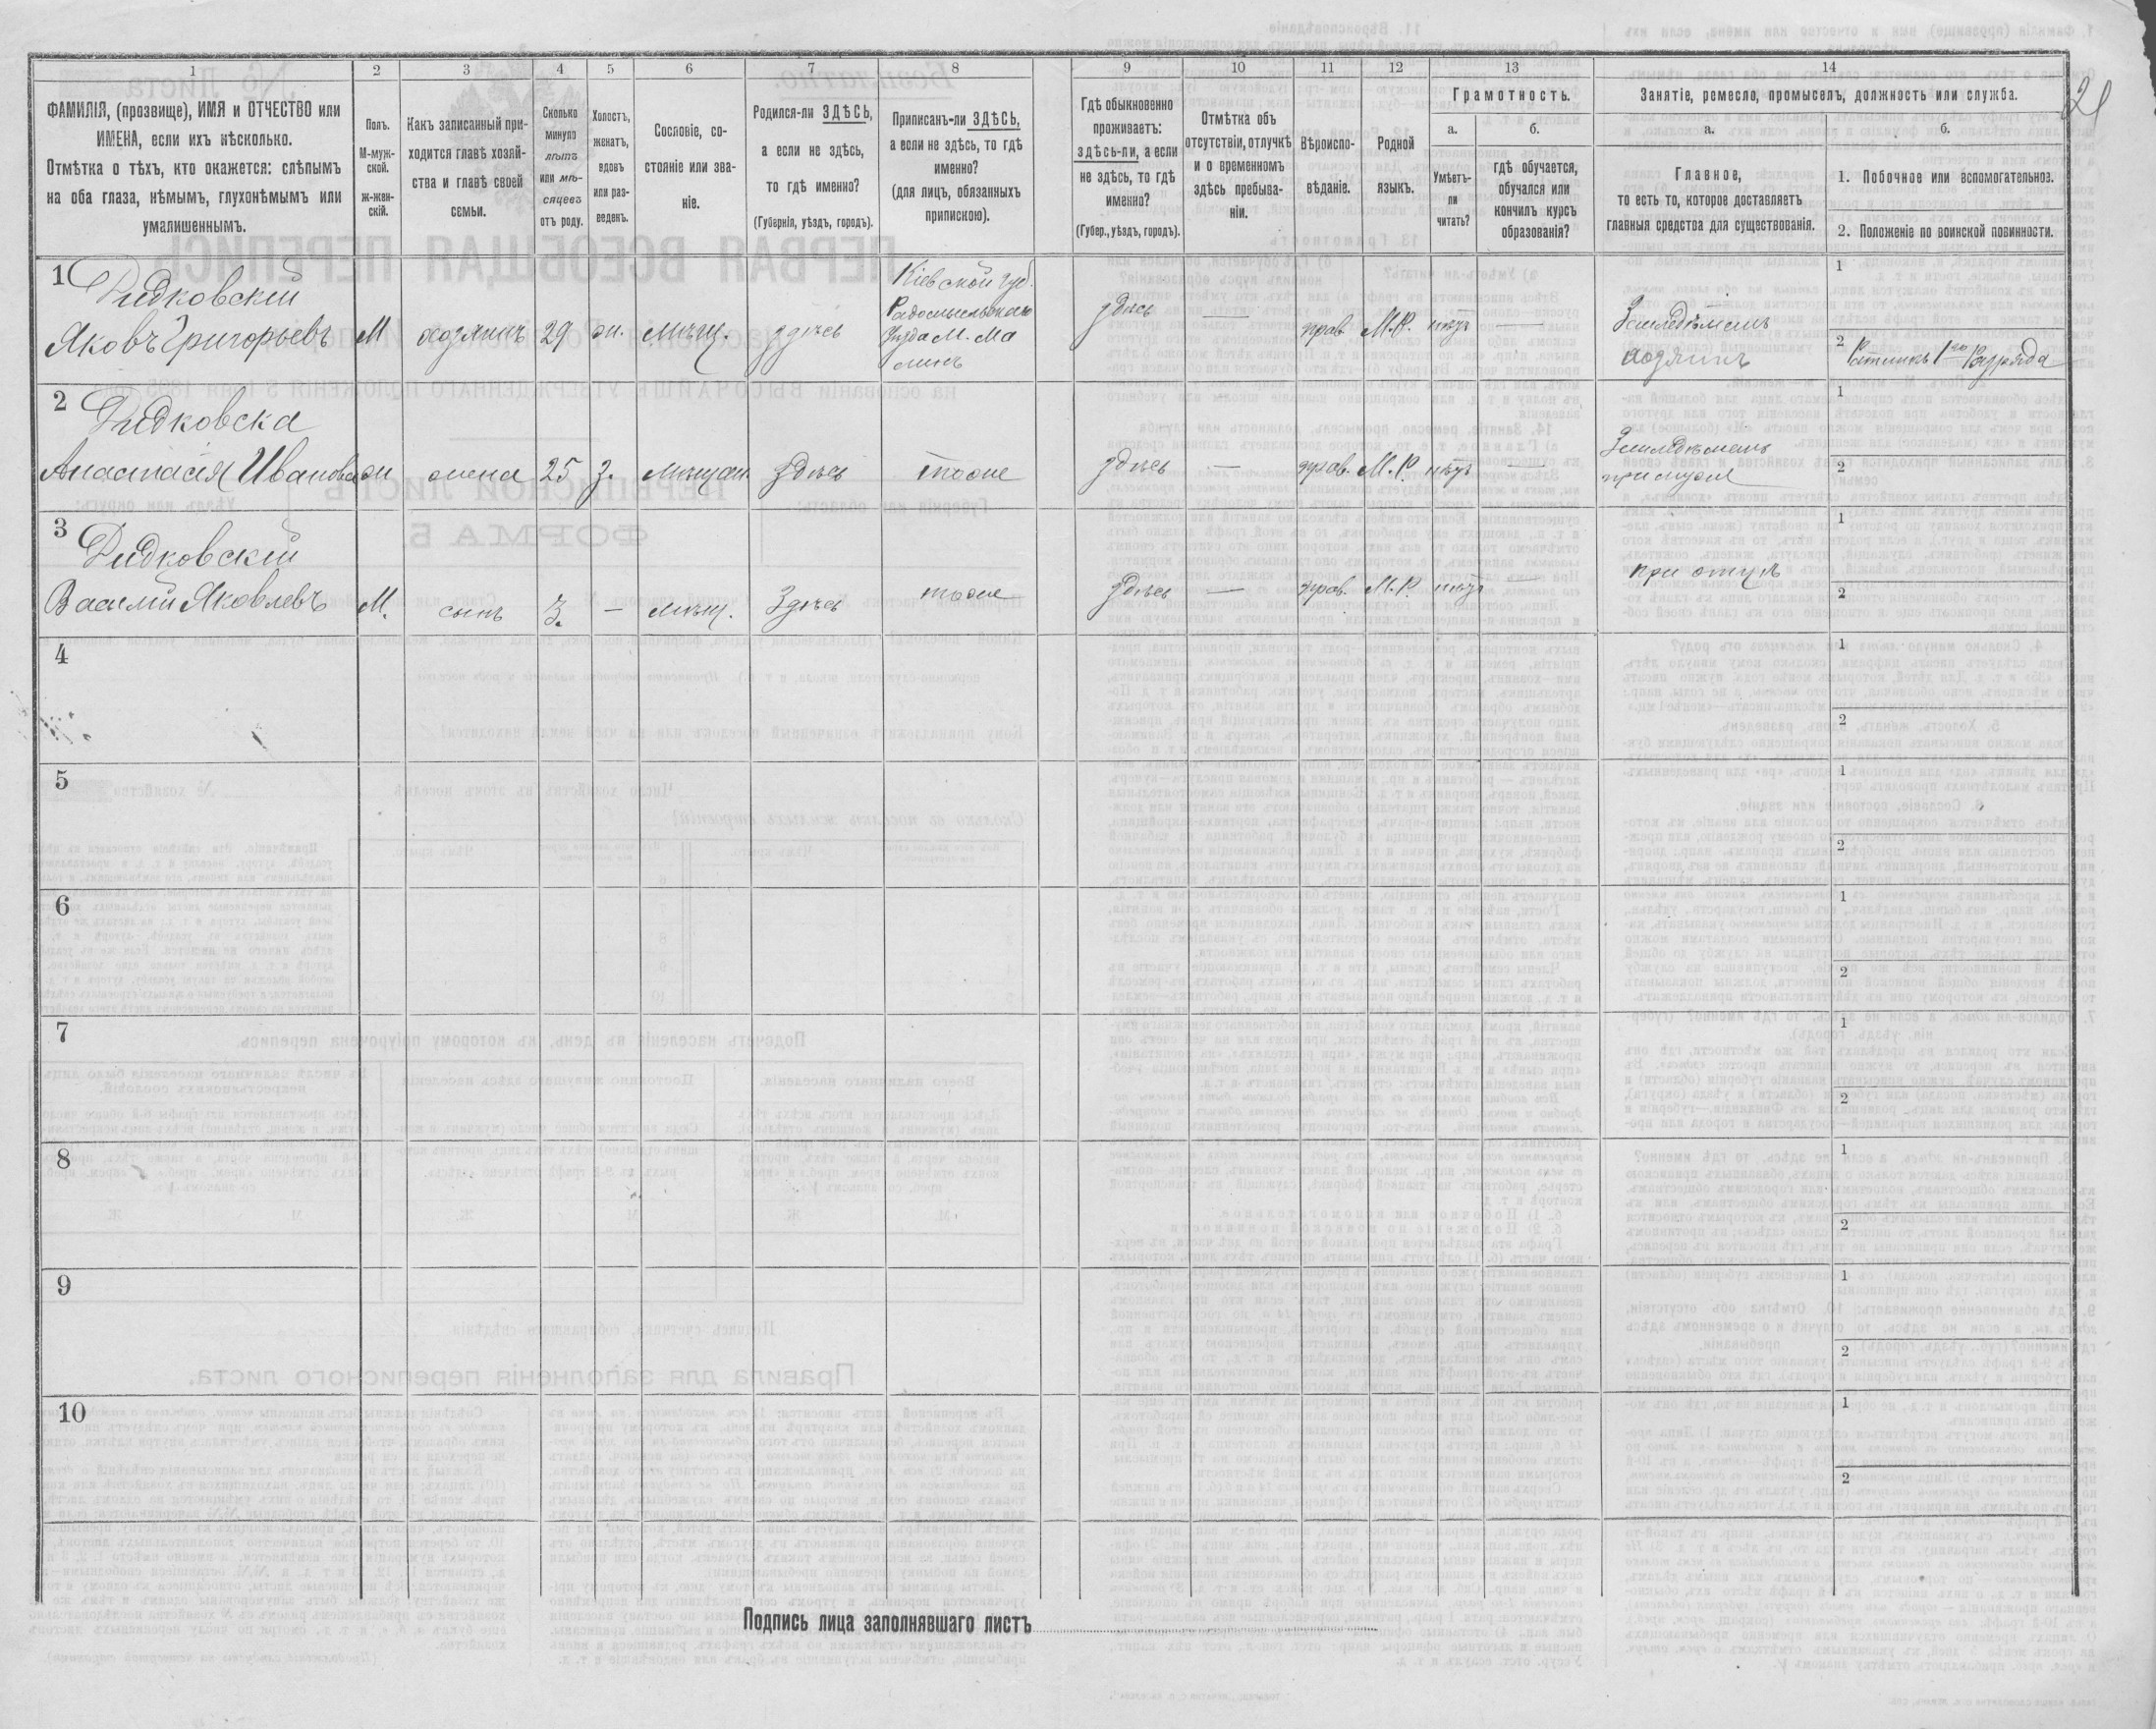 21
1
2
3
4
5
6
7
8
9
10
11
12
13
14
ФАМИЛІЯ, (прозвище), ИМЯ и ОТЧЕСТВО или
ИМЕНА, если ихъ нѣсколько.
Отмѣтка о тѣхъ, кто окажется: слѣпымъ
на оба глаза, нѣмымъ, глухонѣмымъ или
умалишеннымъ.
Полъ.
М-муж-
ской.
ж-жен-
скій.
Какъ записанный при-
ходится главѣ хозяй-
ства и главѣ своей
семьи.
Сколько
минуло
лѣтъ
или мѣ-
сяцевъ
отъ роду.
Холостъ,
женатъ,
вдовъ
или раз-
веденъ.
Сословіе, со-
стояніе или зва-
ніе.
Родился-ли ЗДѢСЬ,
а если не здѣсь,
то гдѣ именно?
(Губернія, уѣздъ, городъ).
Приписанъ-ли ЗДѢСЬ,
а если не здѣсь, то гдѣ
именно?
(для лицъ, обязанныхъ
припискою).
Гдѣ обыкновенно
проживаетъ:
здѣсь-ли, а если
не здѣсь, то гдѣ
именно?
(Губер., уѣздъ, городъ).
Отмѣтка объ
отсутствіи, отлучкѣ
и о временномъ
здѣсь пребыва-
ніи.
Вѣроиспо-
вѣданіе.
Родной
языкъ.
Грамотность.
а.
б.
Умѣетъ-
ли
читать?
гдѣ обучается,
обучался или
кончилъ курсъ
образованія?
Занятіе, ремесло, промыселъ, должность или служба.
а.
б.
Главное,
то есть то, которое доставляетъ
главныя средства для существованія.
1. Побочное или вспомогательное.
2. Положеніе по воинской повинности.
1
Дидковскій
Яковъ Григорьевъ
М
хозяинъ
29
ж.
мѣщ.
здѣсь
Кіевской губ.
Радомысльскаго
Уѣзда М. Ма
линъ
здѣсь
—
прав.
М.Р.
нѣтъ
—
Земледѣлецъ
хозяинъ
1
2 Ратникъ 1го Разряда
2
Дидковска
Анастасія Иванова
ж
жена
25
з.
мѣщан.
Здѣсь
тоже
здѣсь
—
прав.
М.Р.
нѣтъ
—
Земледѣлецъ
при мужѣ
1
2
3
Дидковскій
Василій Яковлевъ
М.
сынъ
3.
—
мѣщ.
Здѣсь
тоже
здѣсь
—
прав.
М.Р.
нѣтъ
—
при отцѣ
1
2
4
1
2
5
1
2
6
1
2
7
1
2
8
1
2
9
1
2
10
1
2
Подпись лица заполнявшаго листъ